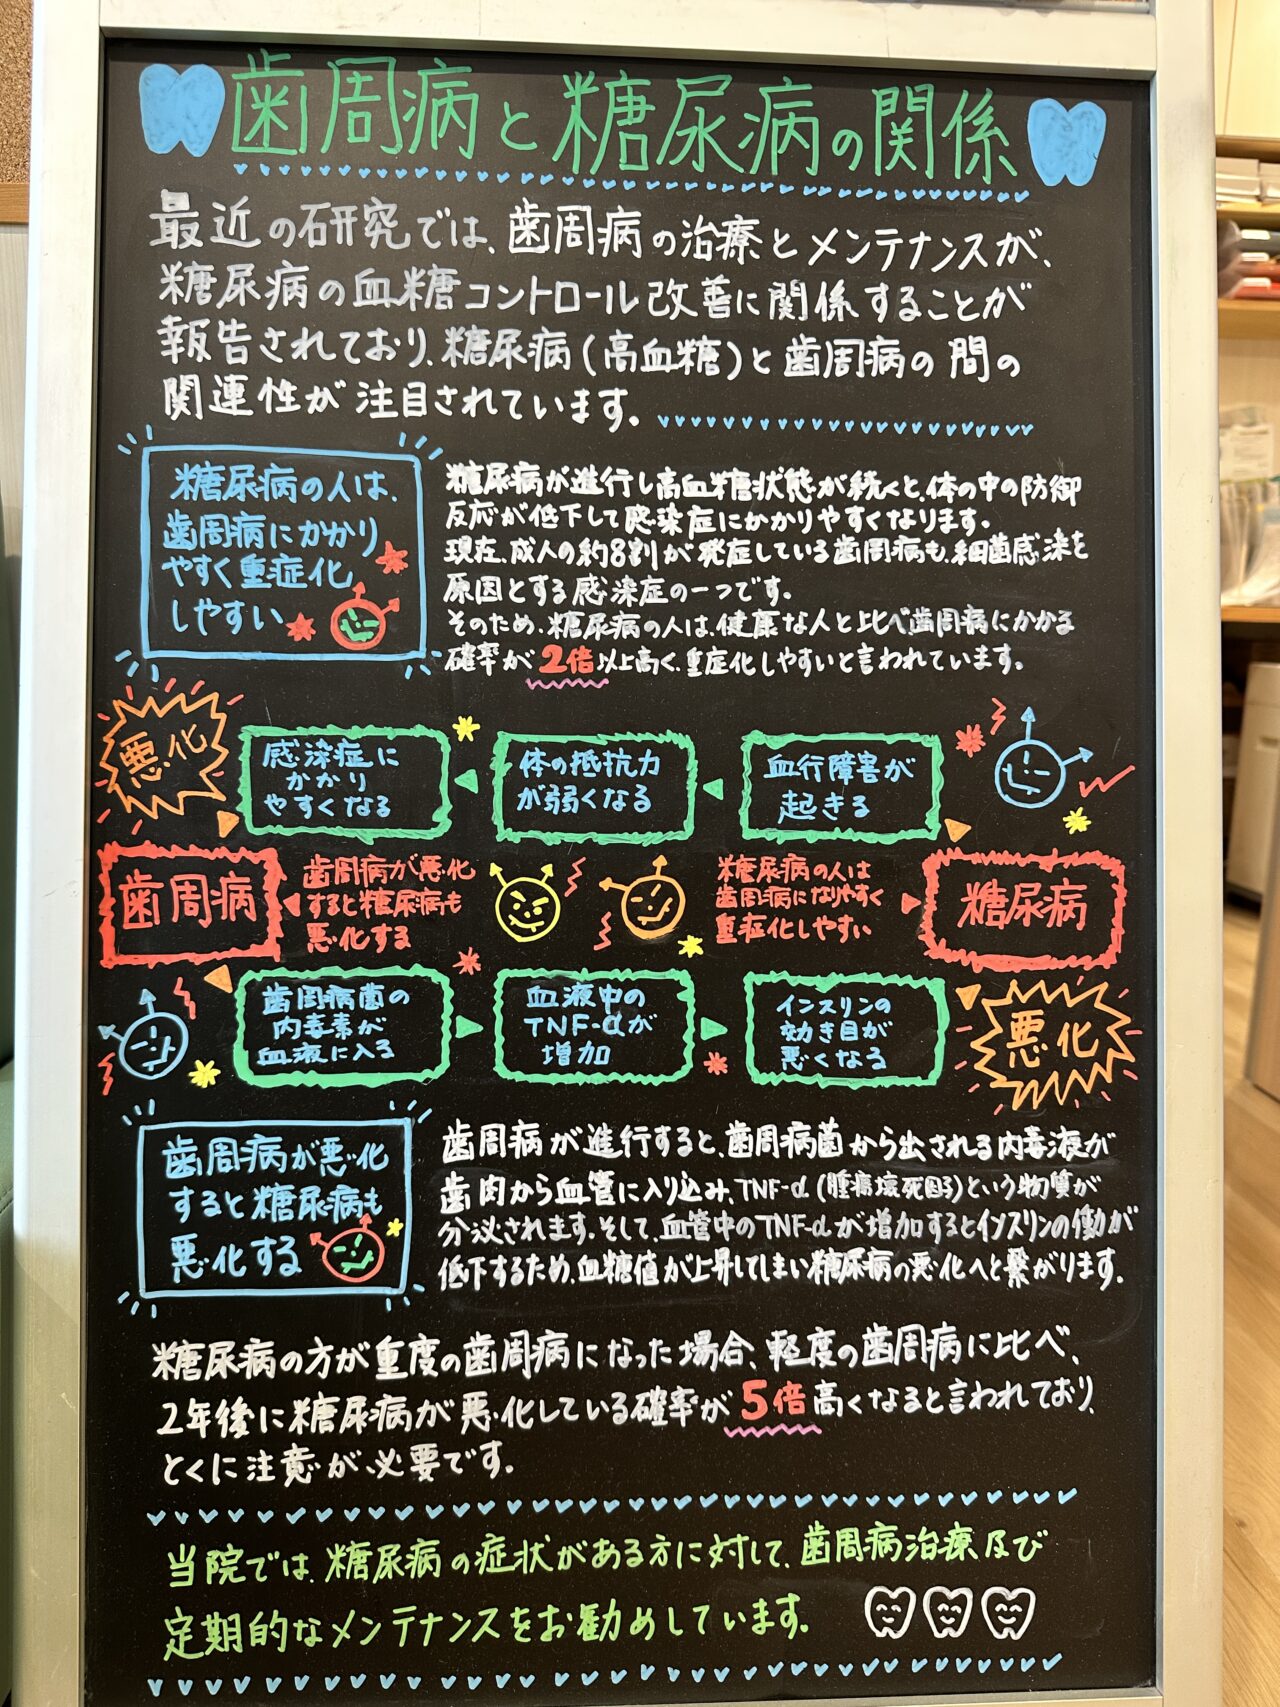 歯周病と糖尿病の関係
最近の研究では、歯周病の治療とメンテナンスが、
糖尿病の血糖コントロール改善に関係することが
報告されており、糖尿病(高血糖)と歯周病の間の
関連性が注目されています。
糖尿病の人は、
歯周病にかかり
やすく重症化
しやすい
糖尿病が進行し高血糖状態が続くと、体の中の防御
反応が低下して感染症にかかりやすくなります。
現在、成人の約8割が発症している歯周病も、細菌感染を
原因とする感染症の一つです。
そのため、糖尿病の人は、健康な人と比べ歯周病にかかる
確率が2倍以上高く、重症化しやすいと言われています。
悪化
感染症に
かかり
やすくなる
体の抵抗力
が弱くなる
血行障害が
起きる
歯周病
歯周病が悪化
すると糖尿病も
悪化する
糖尿病の人は
歯周病になりやすく
重症化しやすい
糖尿病
歯周病菌の
内毒素が
血液に入る
血液中の
TNF-αが
増加
インスリンの
効き目が
悪くなる
悪化
歯周病が悪化
すると糖尿病も
悪化する
歯周病が進行すると、歯周病菌から出される内毒液が
歯肉から血管に入り込み、TNF-α(腫瘍壊死因子)という物質が
分泌されます。そして、血管中のTNF-αが増加するとインスリンの働が
低下するため、血糖値が上昇してしまい糖尿病の悪化へと繋がります。
糖尿病の方が重度の歯周病になった場合、軽度の歯周病に比べ、
2年後に糖尿病が悪化している確率が5倍高くなると言われており、
とくに注意が必要です。
当院では、糖尿病の症状がある方に対して、歯周病治療及び
定期的なメンテナンスをお勧めしています。